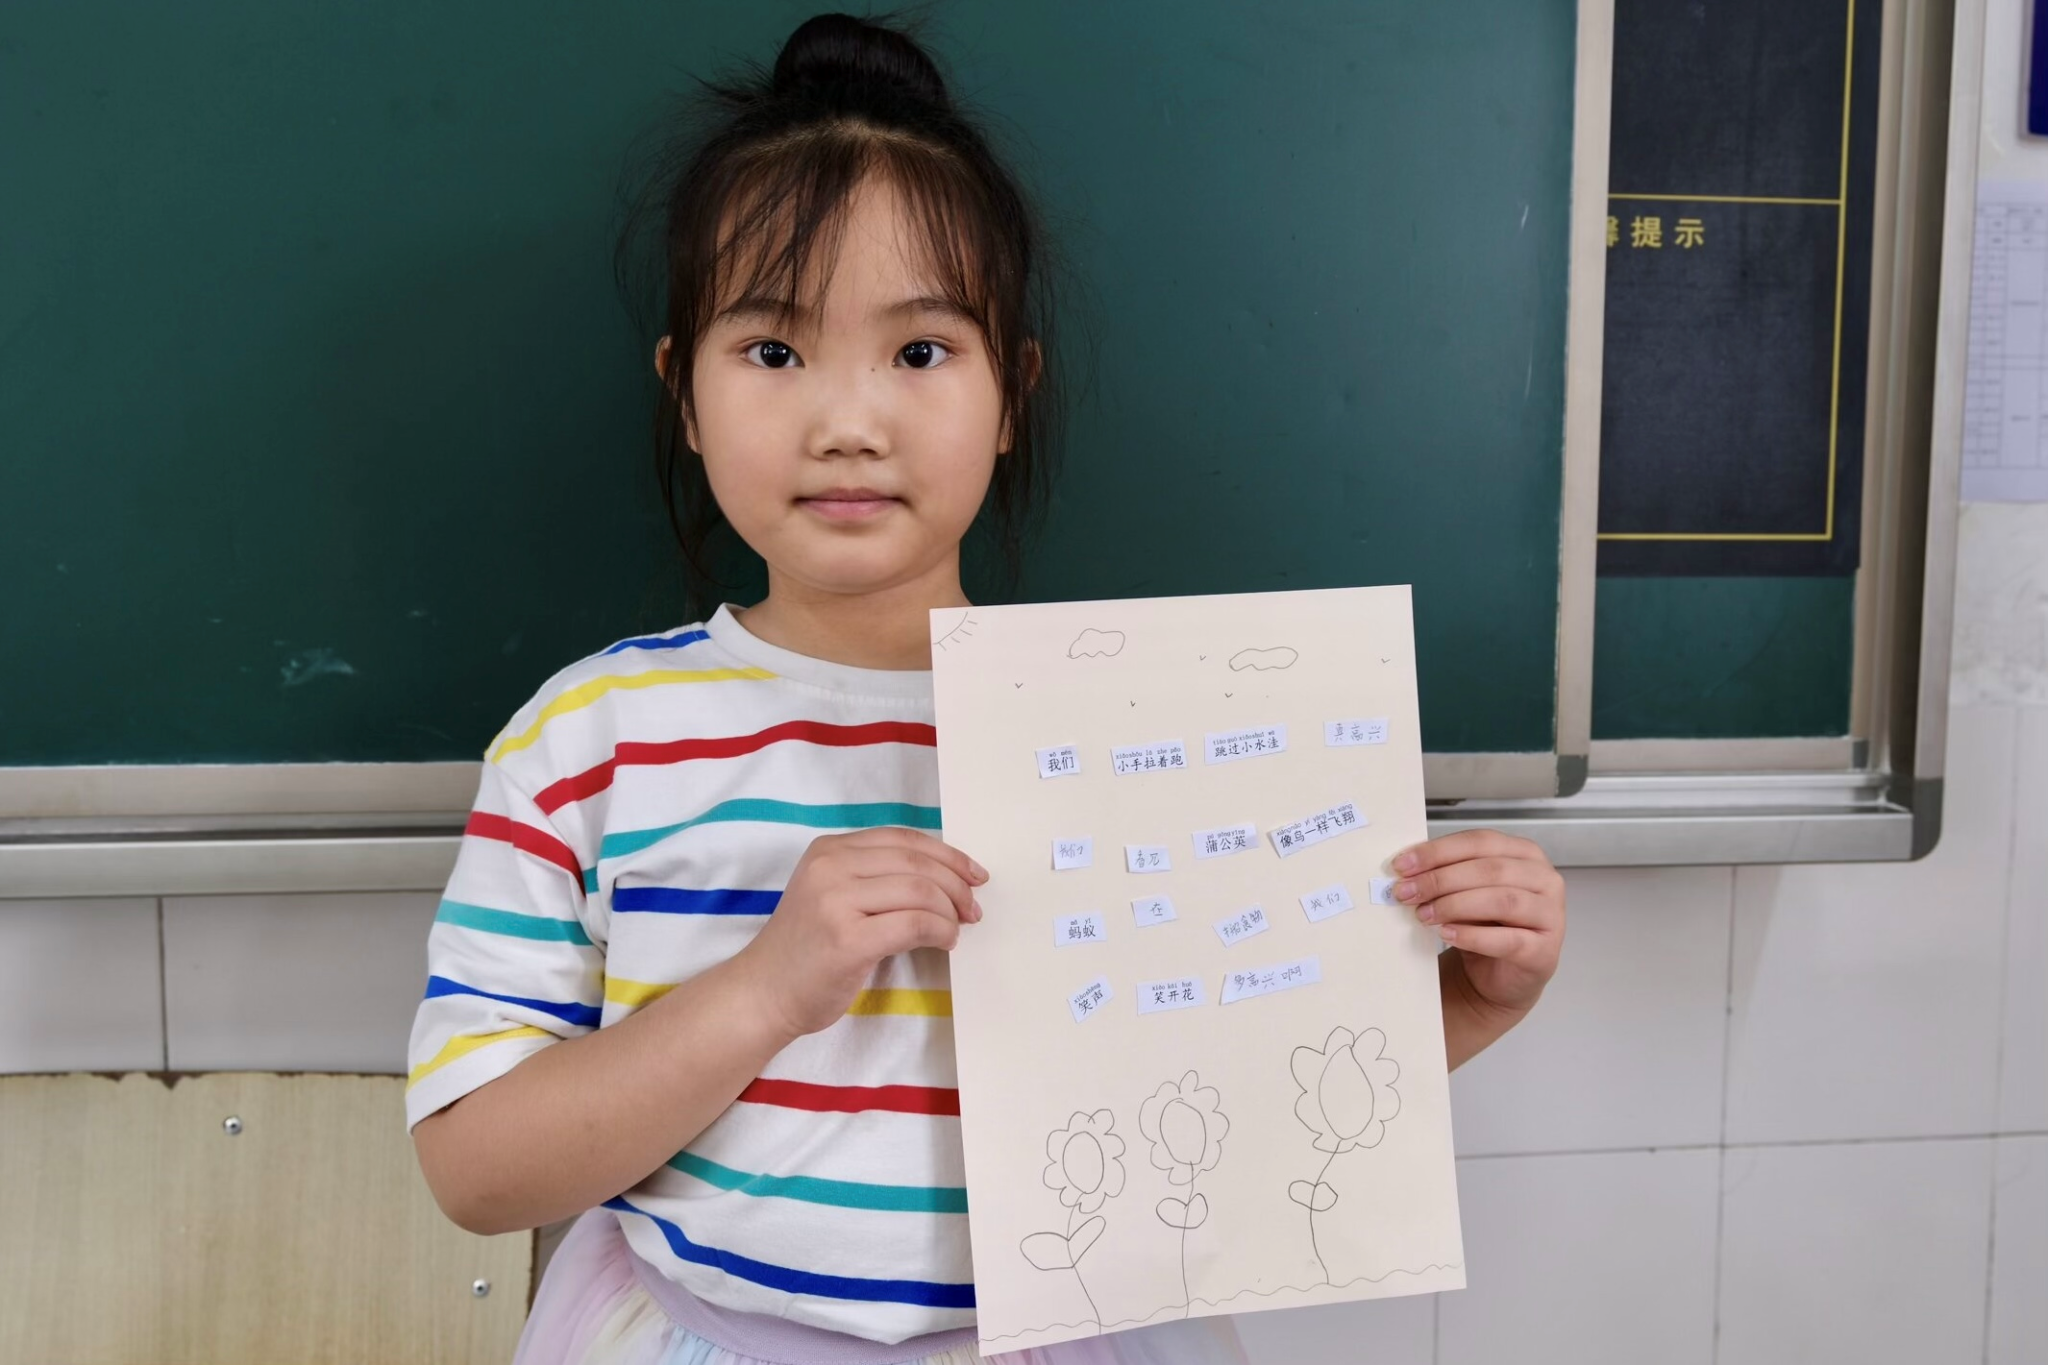 提示
wǒ men xiǎoshǒu lā zhe pǎo tiào guò xiǎoshuǐ wā
我们 小手拉着跑 跳过小水洼 真高兴
pú gōng yīng xiàngniǎo yí yàng fēi xiáng
我们 看见 蒲公英 像鸟一样飞翔
mǎ yǐ
蚂蚁 在 食物 我们
xiàoshēng xiào kāi huā
笑声 笑开花 多高兴啊